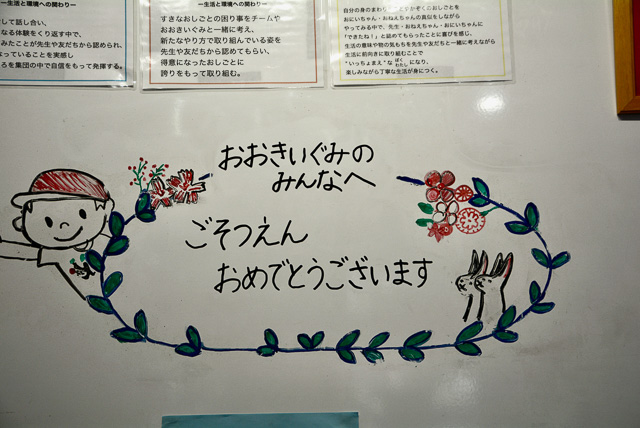 ー生活と環境への関わりー
して話し合い、
なる体験をくり返す中で、
みたことが先生や友だちから認められ、
っていることを実感し
ろを集団の中で自信をもって発揮する。
ー生活と環境への関わりー
すきなおしごとの困り事をチームや
おおきいぐみと一緒に考え、
新たなやり方で取り組んでいる姿を
先生や友だちから認めてもらい、
得意になったおしごとに
誇りをもって取り組む。
自分の身のまわり
おにいちゃん・おねえちゃんの真似をしながら
やってみる中で、先生・おねえちゃん・おにいちゃんに
「できたね！」と認めてもらったことに喜びを感じ、
生活の意味や物の気もちを先生や友だちと一緒に考えながら
生活に前向きに取り組むことで
"いっちょまえ"な ぼく わたし になり、
楽しみながら丁寧な生活が身につく。
おおきいぐみの
みんなへ
ごそつえん
おめでとうございます